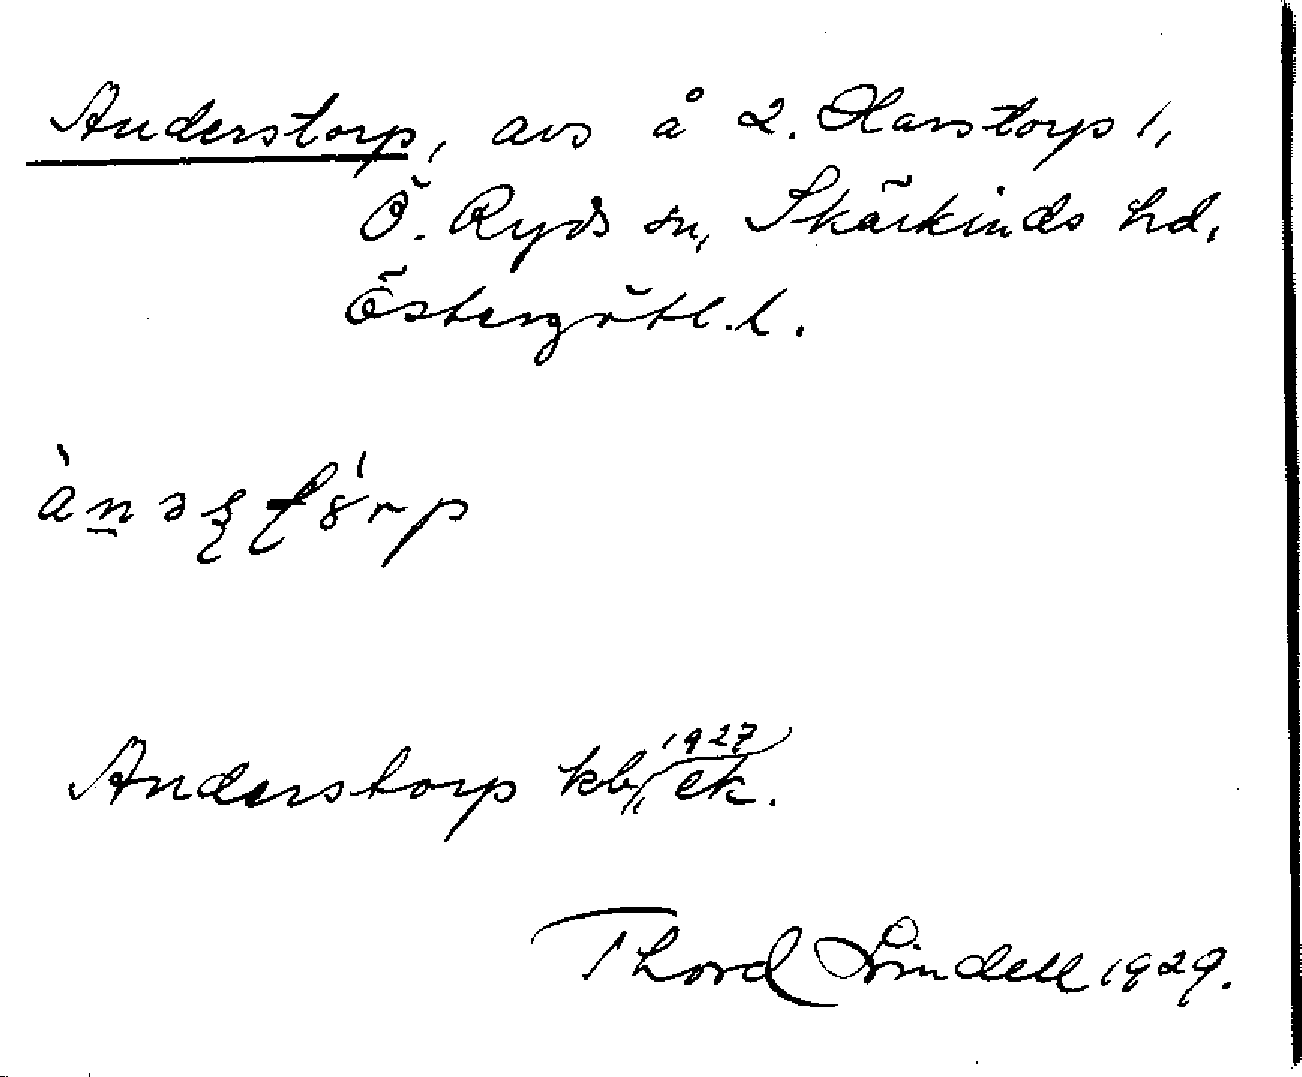 Anderstorp, avs å 2. Harstorp 1,
Ö. Ryds sn, Skärkinds hd,
Östergötl. l.
Anderstorp kb, 1927 ek.
Thord Lindell 1929.